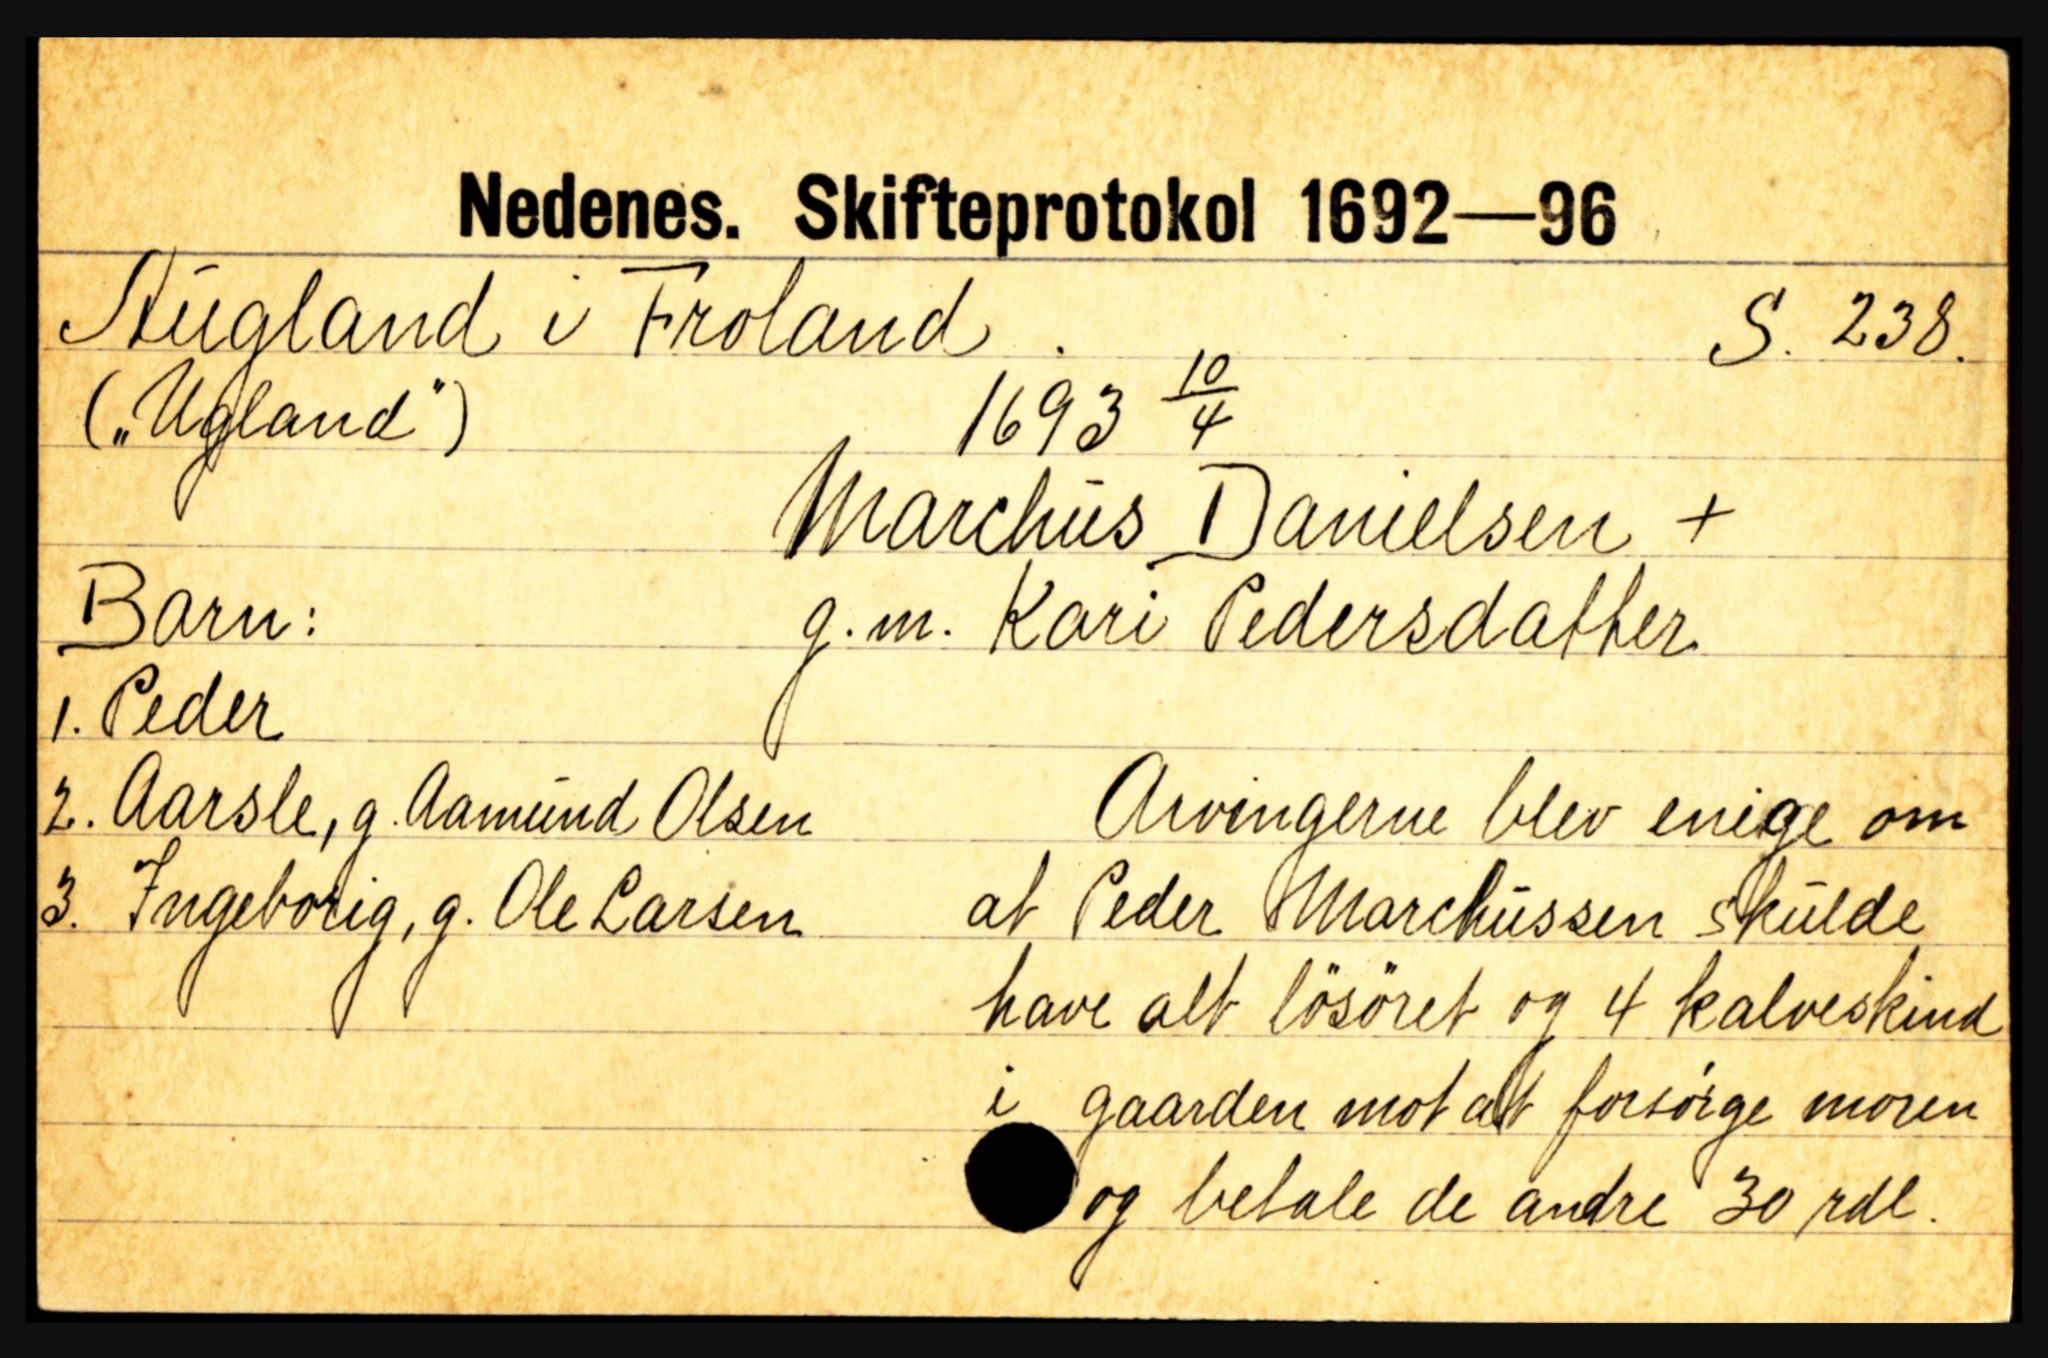 Nedenes. Skifteprotokol 1692—96
Augland i Froland. S. 238.
(„Ugland") 1693 10/4
Marchus Danielsen +
Barn: g.m. Kari Pedersdatter
1. Peder
2. Aarsle, g. Aamund Olsen
3. Ingeborig, g. Ole Larsen
Arvingerne blev enige om
at Peder Marchussen skulde
have alt lösöret og 4 kalveskind
i gaarden mot at forsörge moren
og betale de andre 30 rdl.